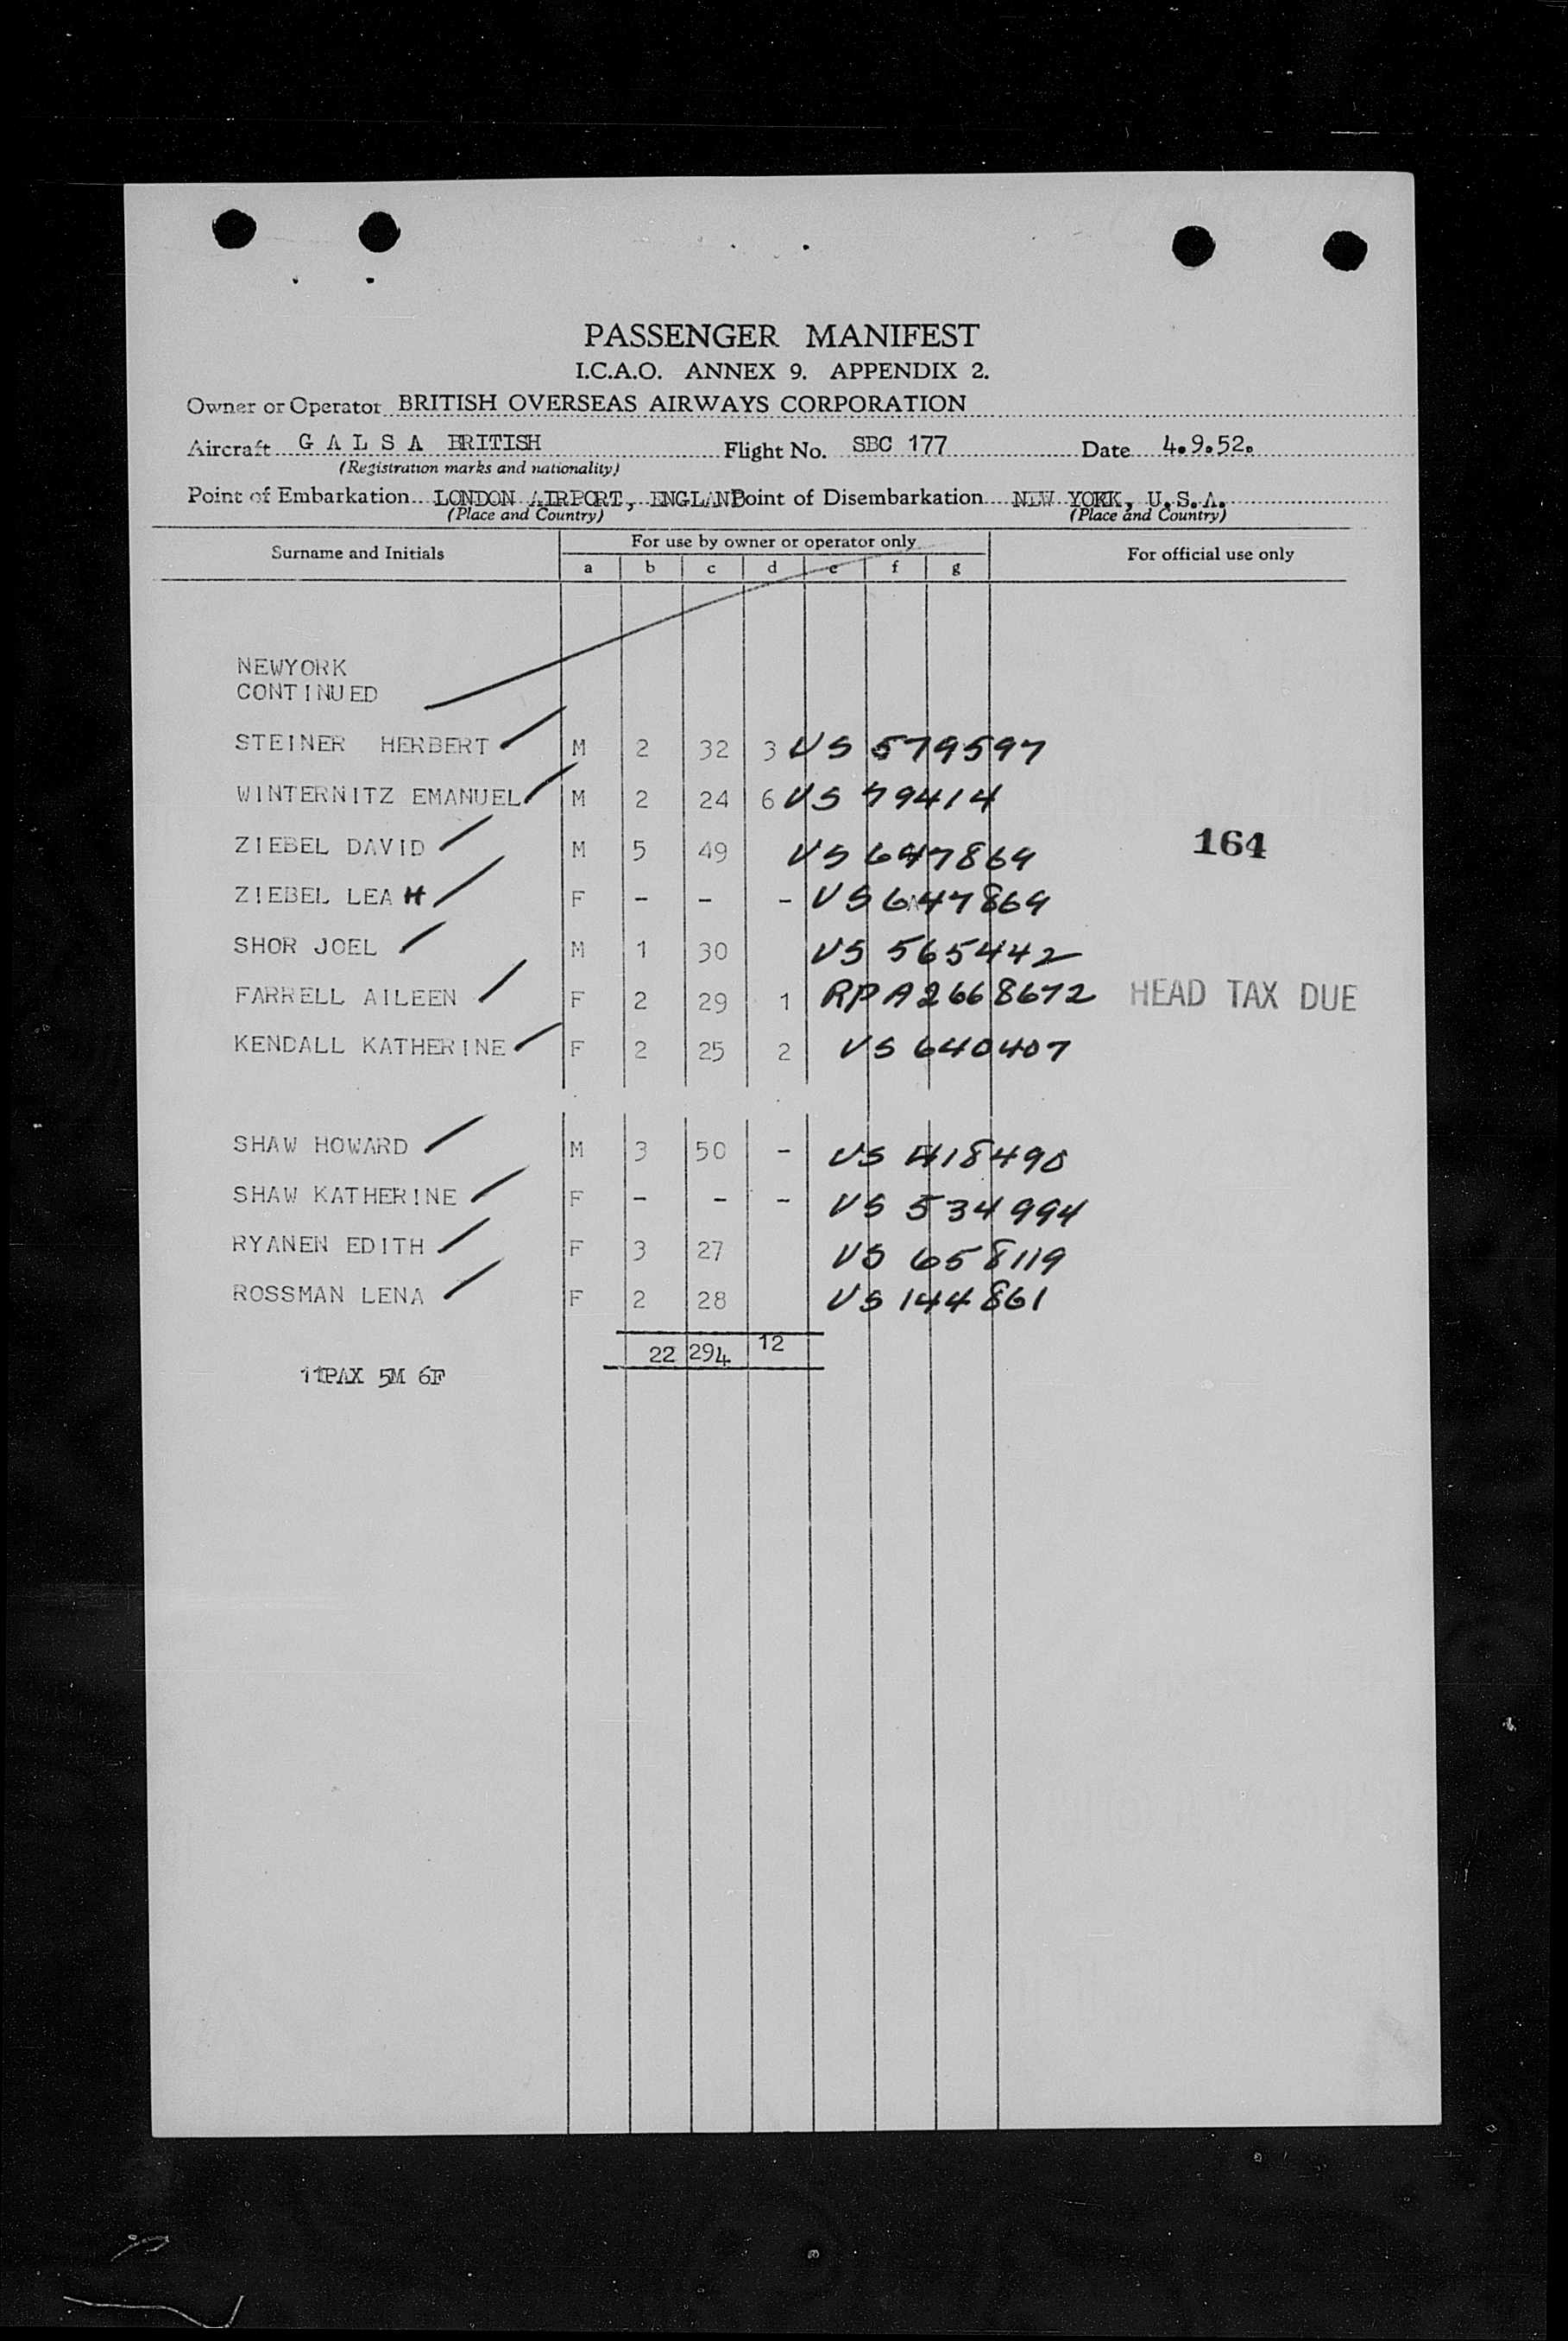 PASSENGER MANIFEST
I.C.A.O. ANNEX 9. APPENDIX 2.
Owner or Operator BRITISH OVERSEAS AIRWAYS CORPORATION
Aircraft G A L S A BRITISH Flight No. SBC 177 Date 4.9.52.
(Registration marks and nationality)
Point of Embarkation LONDON AIRPORT, ENGLAND Point of Disembarkation NEW YORK, U.S.A.
(Place and Country) (Place and Country)
Surname and Initials For use by owner or operator only For official use only
a b c d e f g
NEWYORK
CONTINUED
STEINER HERBERT M 2 32 3 US 579597
WINTERNITZ EMANUEL M 2 24 6 US 79414
ZIEBEL DAVID M 5 49 US 647869 164
ZIEBEL LEAH F - - - US 647869
SHOR JOEL M 1 30 US 565442
FARRELL AILEEN F 2 29 1 RP A2668672 HEAD TAX DUE
KENDALL KATHERINE F 2 25 2 US 640407
SHAW HOWARD M 3 50 - US 418490
SHAW KATHERINE F - - - US 534994
RYANEN EDITH F 3 27 US 658119
ROSSMAN LENA F 2 28 US 144861
22 294 12
11PAX 5M 6F